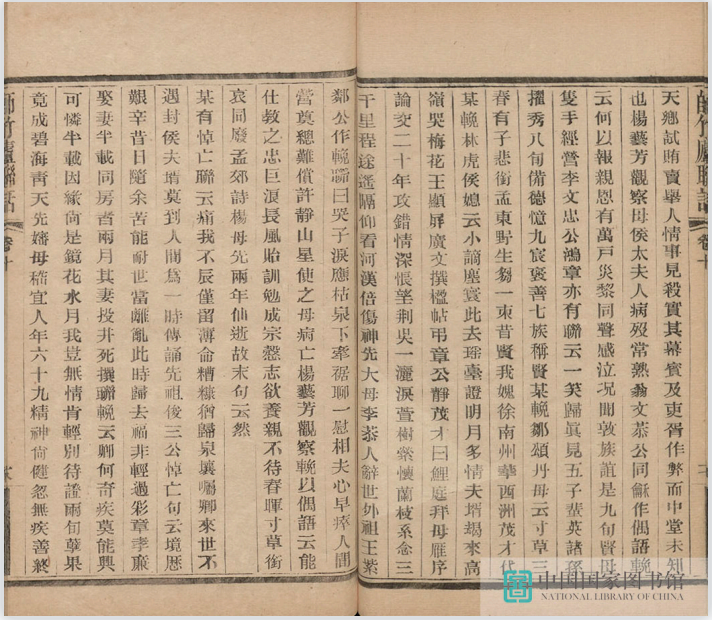 師竹廬聯話 卷十
天鄉試賄賣舉人情事見殺實其幕賓及吏胥作弊而中堂未知
也楊藝芳觀察母侯太夫人病歿常熟翁文恭公同龢作偶語輓
云何以報親恩有萬戶災黎同聲感泣况聞敦族誼是九旬賢母
隻手經營李文忠公鴻章亦有聯云一笑歸眞見五子蜚英諸孫
擢秀八旬備德憶九宸褒善七族稱賢某輓鄒頌丹母云寸草三
春有子悲銜孟東野生芻一束昔賢我媿徐南州華酉洲茂才代
某輓林虎侯媳云小謫塵寰此去瑶臺證明月多情夫壻朅來高
嶺哭梅花王顯屏廣文撰楹帖弔章公靜茂才曰鯉庭拜母雁序
論交二十年攻錯情深悵望荆吳一灑淚萱樹縈懷蘭枝系念三
千里程途遥隔仰看河漢倍傷神先大母李恭人辭世外祖王紫
鄰公作輓聯曰哭子淚應枯泉下牽裾聊一慰相夫心早瘁人間
營奠總難償許靜山星使之母病亡楊藝芳觀察輓以偶語云能
仕教之忠巨浪長風貽訓勉成宗慤志欲養親不待春暉寸草銜
哀同廢孟郊詩楊母先兩年仙逝故末句云然
某有悼亡聯云痛我不辰僅留薄命糟糠猶歸泉壤囑卿來世不
遇封侯夫壻莫到人間爲一時傳誦先祖後三公悼亡句云境歷
艱辛昔日隨余苦能耐世當離亂此時歸去福非輕過彩章孝廉
娶妻半載同房者兩月其妻投井死撰聯輓云卿何奇疾莫能興
可憐半載因緣尚是鏡花水月我豈無情肯輕別待證兩旬孽果
竟成碧海靑天先嬸母嵇宜人年六十九精神尚健忽無疾善終
師竹廬聯話 卷十
中国国家图书馆
NATIONAL LIBRARY OF CHINA